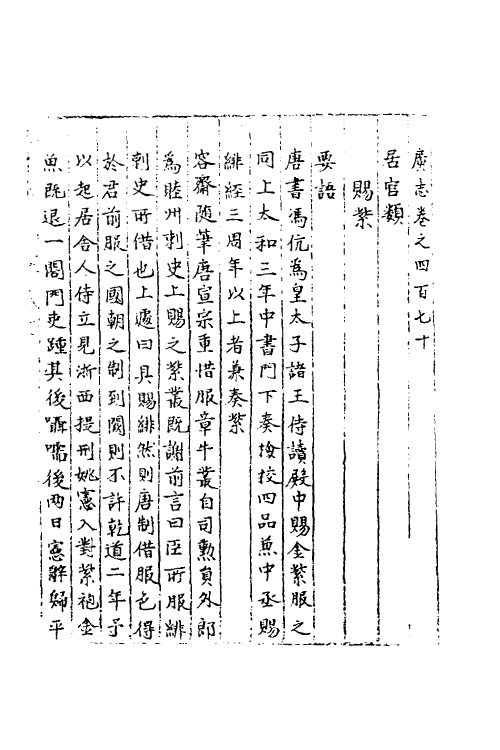 廣志卷之四百七十
居官類
賜紫
要語
唐書馮伉為皇太子諸王侍讀殿中賜金紫服之
同上太和三年中書門下奏檢校四品兼中丞賜
緋經三周年以上者兼奏紫
容齋随筆唐宣宗重惜服章牛叢自司勲員外郎
為睦州刺史上賜之紫叢既謝前言曰臣所服緋
刺史所借也上遽曰且賜緋然則唐制借服色得
於君前服之國朝之制到闕則不許乾道二年予
以起居舎人侍立見浙西提刑姚憲入對紫袍金
魚既退一閤門吏踵其後囁嚅後兩日憲辭歸平